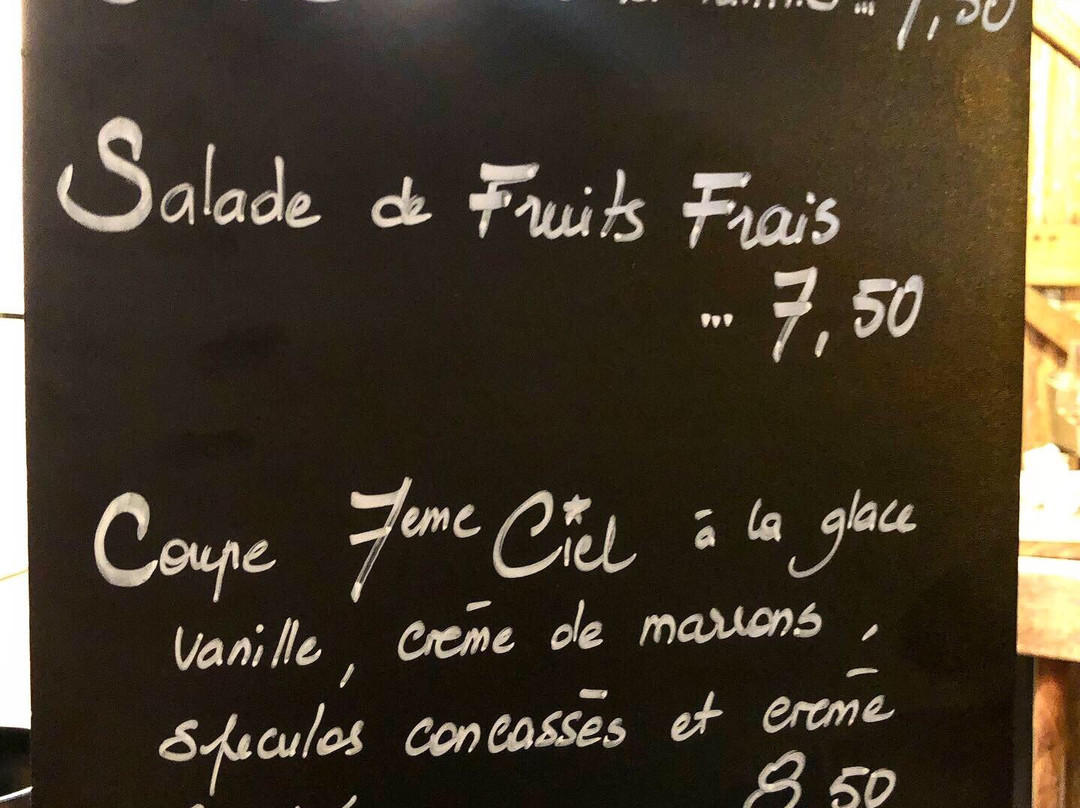 ... 7,50
Salade de Fruits Frais
... 7,50
Coupe 7eme Ciel à la glace
vanille, crème de marrons,
speculos concassés et crème
8,50